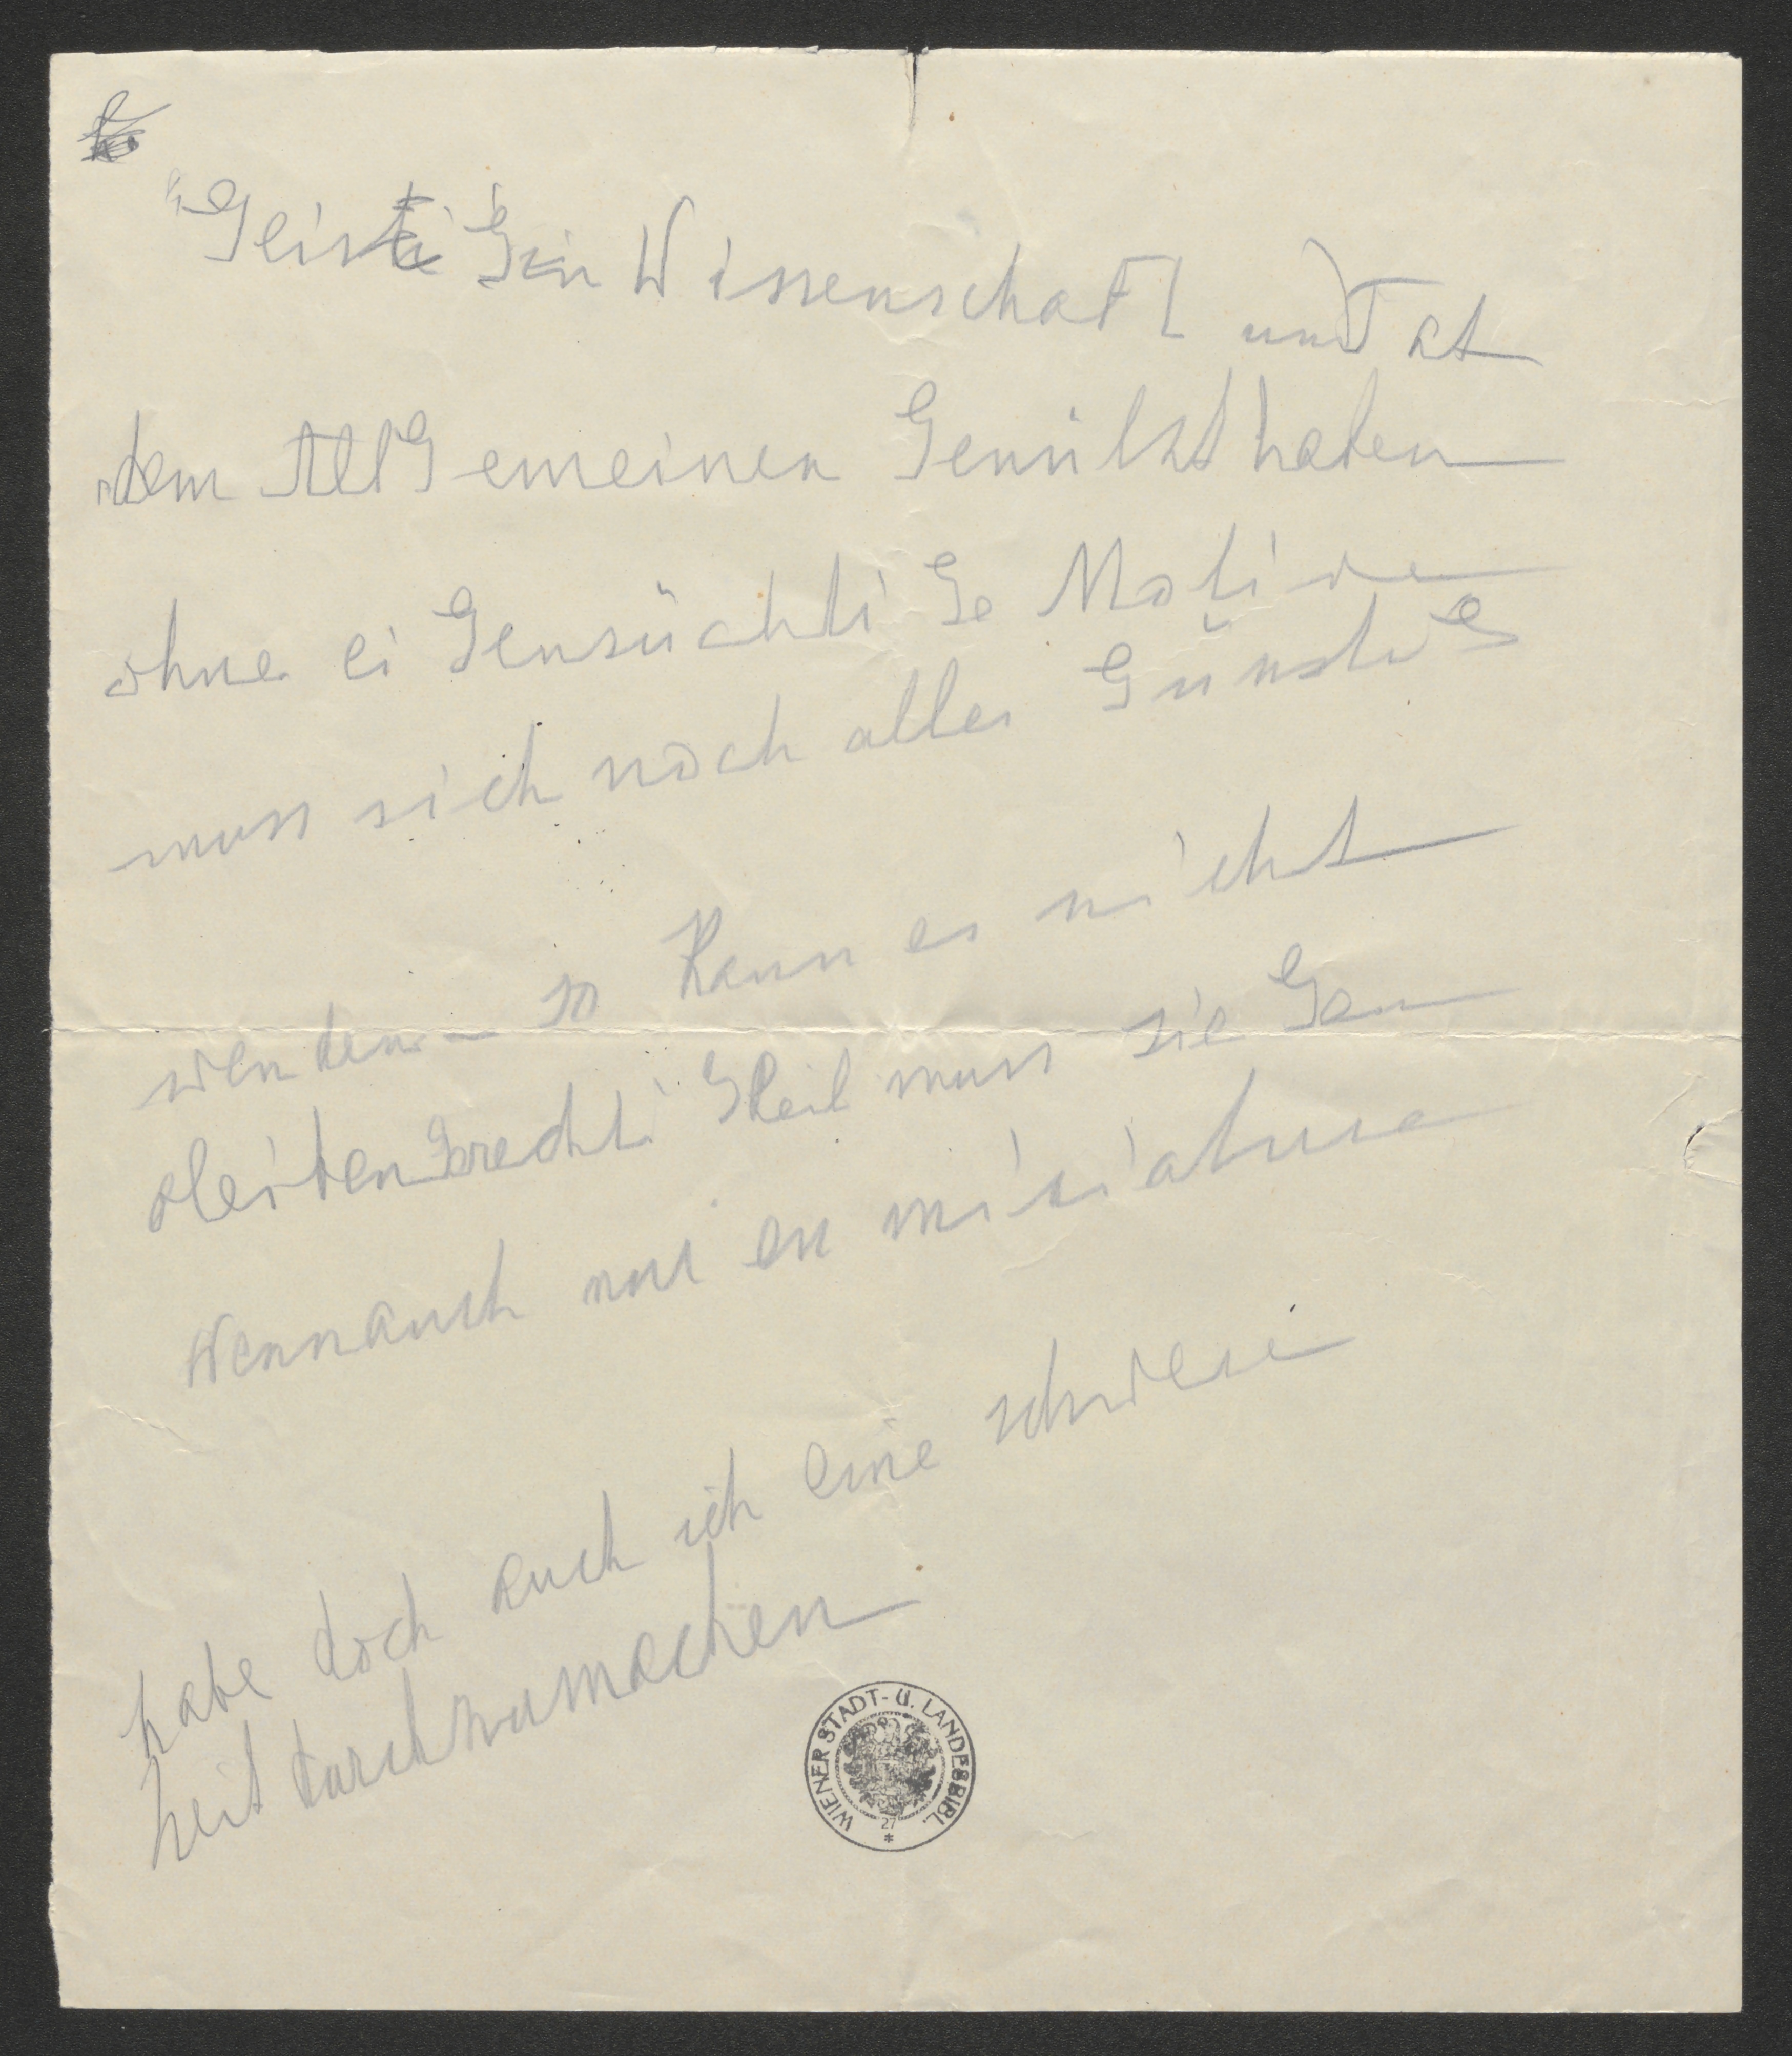 "Geistig in Wissenschaft und Tat
dem AllGemeinen Genützt haben
ohne eiGensüchtiGe Motive
muss sich noch alles GünstiG
wenden – so kann es nicht
bleiben GerechtiGkeit muss sie Gen
Wennauch nur en miniature
habe doch auch ich eine schwere
heit durchzumachen
WIENER STADT- U. LANDESBIBL.
27